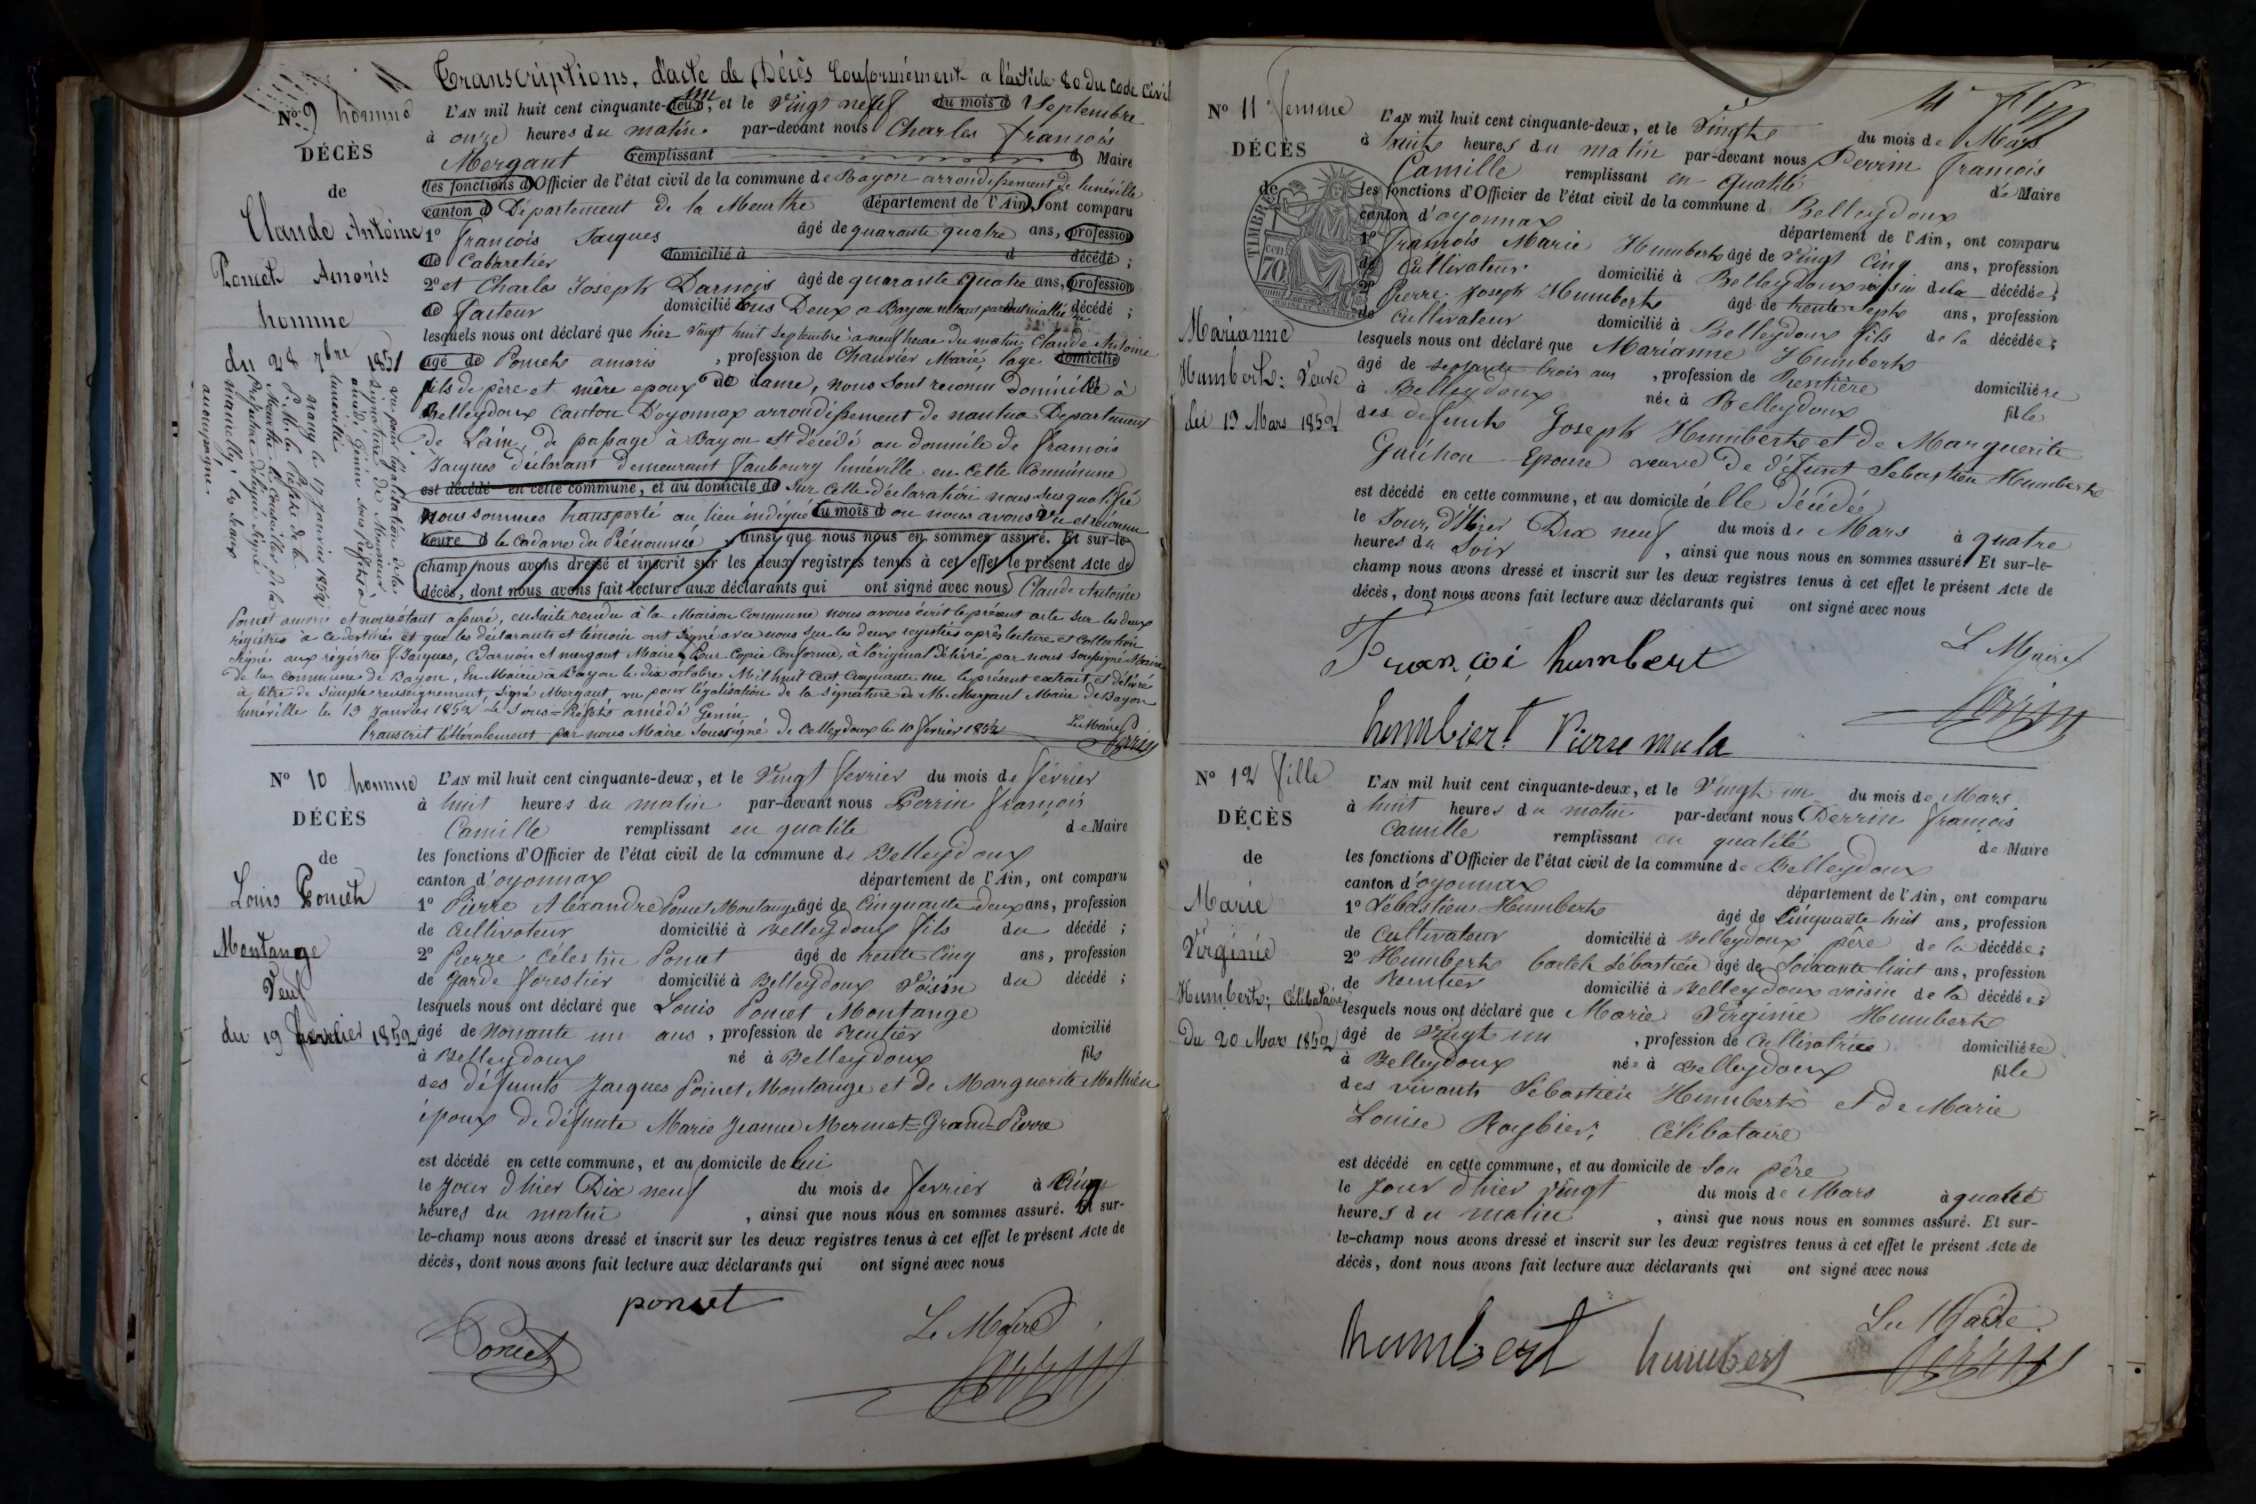 Transcriptions, d'acte de Décès Conformément a l'article 80 du Code Civil
No 9 homme
DÉCÈS
de
Claude Antoine
Poncet Amoris
homme
du 28 7bre 1851
L'AN mil huit cent cinquante-deux, un et le vingt neuf du mois d Septembre
à onze heures du matin. par-devant nous Charles François
Mergaut remplissant d Maire
les fonctions d'Officier de l'état civil de la commune de Bayon arrondissement de lunéville
canton d Département de la Meurthe département de l'Ain, sont comparu
1o François Jacques âgé de quarante quatre ans, profession
de Cabaretier domicilié à d décédé ;
2o et Charles Joseph Darnois âgé de quarante quatre ans, profession
de facteur domicilié tous Deux a Bayon décédé ;
lesquels nous ont déclaré que hier vingt huit Septembre à neuf heure du matin, Claude Antoine
âgé de Poncet amoris , profession de Chanvrier Marié, lage domicilié
fils de père et mère epoux de dame, nous sont reconnu Domicilié à
Belleydoux Canton D'oyonnax arrondissement de nantua Departement
de L'ain, de passage à Bayon est décédé au domicile de François
Jacques déclarant demeurant faubourg lunéville en cette Commune
est décédé en cette commune, et au domicile de Sur cette déclaration nous susqualifié
nous sommes transporté au lieu indiqué du mois d ou nous avons vu et reconnu
heure d le cadavre du Prénommé , ainsi que nous nous en sommes assuré. Et sur-le-
champ nous avons dressé et inscrit sur les deux registres tenus à cet effet le présent Acte de
décès, dont nous avons fait lecture aux déclarants qui ont signé avec nous Claude Antoine
Poncet amoris et nous étant assuré, ensuite rendu à la Maison Commune nous avons écrit le présent acte sur les deux
régistres à ce destinés et que les déclarants et témoin ont signé avec nous sur les deux registres après lecture et Collation
Signé aux régistres F. Jacques, Darnois et mergaut Maire, Pour Copie Conforme, à l'original Délivré par nous soussigné Maire
de la Commune de Bayon, En Mairie à Bayon le dix octobre Mil huit Cent Cinquante un le présent extrait est délivré
à titre de simple renseignement, Signé Mergaut, vu pour légalisation de la signature de Mr Mergaut Maire de Bayon
lunéville le 13 Janvier 1852 Le Sous-Préfet amédé Genin
Transcrit littéralement par nous Maire Soussigné de Belleydoux le 10 février 1852 Le Maire
Perrin
vu pour légalisation de la
signature de Monsieur
amédé Genin sous préfet à
lunéville
nancy le 17 Janvier 1852
P. Mr le Préfet de la
Meurthe le Conseiller de la
Préfecture délégué signé
No 10 homme
DÉCÈS
de
Louis Poncet
Montange
Veuf
du 19 fevrier 1852
L'AN mil huit cent cinquante-deux, et le Vingt fevrier du mois de février
à huit heures du matin par-devant nous Perrin François
Camille remplissant en qualité de Maire
les fonctions d'Officier de l'état civil de la commune de Belleydoux
canton d'oyonnax département de l'Ain, ont comparu
1o Pierre Alexandre Poncet Montange âgé de Cinquante deux ans, profession
de Cultivateur domicilié à Belleydoux fils du décédé ;
2o Pierre Célestin Poncet âgé de trente Cinq ans, profession
de Garde forestier domicilié à Belleydoux Voisin du décédé ;
lesquels nous ont déclaré que Louis Poncet Montange
âgé de Nonante un ans , profession de Rentier domicilié
à Belleydoux né à Belleydoux fils
des défunts Jacques Poncet Montange et de Marguerite Mathieu
époux de défunte Marie Jeanne Mermet=Grand=Pierre
est décédé en cette commune, et au domicile de lui
le jour d'hier Dix neuf du mois de fevrier à Cinq
heures du matin , ainsi que nous nous en sommes assuré. Et sur-
le-champ nous avons dressé et inscrit sur les deux registres tenus à cet effet le présent Acte de
décès, dont nous avons fait lecture aux déclarants qui ont signé avec nous
poncet
Poncet
Le Maire
Perrin
No 11 femme
DÉCÈS
de
Marianne
Humbert: Veuve
du 19 Mars 1852
TIMBRE
70
L'AN mil huit cent cinquante-deux, et le Vingt du mois de Mars
à huit heures du matin par-devant nous Perrin François
Camille remplissant en qualité de Maire
les fonctions d'Officier de l'état civil de la commune d Belleydoux
canton d'oyonnax département de l'Ain, ont comparu
1o François Marie Humbert âgé de Vingt Cinq ans, profession
de Cultivateur domicilié à Belleydoux voisin dela décédée ;
2o Pierre Joseph Humbert âgé de trente Sept ans, profession
de Cultivateur domicilié à Belleydoux fils de la décédée ;
lesquels nous ont déclaré que Marianne Humbert
âgé de septante trois ans , profession de Rentière domiciliére
à Belleydoux née à Belleydoux fille
des defunts Joseph Humbert et de Marguerite
Guichon Epouse veuve de défunt Sebastien Humbert
est décédé en cette commune, et au domicile de lle décédée
le Jour, d'hier Dix neuf du mois de Mars à quatre
heures du Soir , ainsi que nous nous en sommes assuré. Et sur-le-
champ nous avons dressé et inscrit sur les deux registres tenus à cet effet le présent Acte de
décès, dont nous avons fait lecture aux déclarants qui ont signé avec nous
Françoi humbert
Le Maire
Perrin
humbert Pierre
No 12 fille
DÉCÈS
de
Marie
Virginie
Humbert; Célibataire
Du 20 Mars 1852
L'AN mil huit cent cinquante-deux, et le Vingt un du mois de Mars
à huit heures du matin par-devant nous Perrin François
Camille remplissant en qualité de Maire
les fonctions d'Officier de l'état civil de la commune de Belleydoux
canton d'oyonnax département de l'Ain, ont comparu
1o Sébastien Humbert âgé de Cinquante huit ans, profession
de Cultivateur domicilié à Belleydoux père de la décédée ;
2o Humbert Sébastien âgé de Soixante huit ans, profession
de Rentier domicilié à Belleydoux voisin de la décédée ;
lesquels nous ont déclaré que Marie Virginie Humbert
âgé de vingt un , profession de Cultivatrice domiciliére
à Belleydoux née à Belleydoux fille
des vivants Sébastien Humbert et de Marie
Louise Roybier, Célibataire
est décédé en cette commune, et au domicile de Son père
le Jour d'hier vingt du mois de Mars à quatre
heures du matin , ainsi que nous nous en sommes assuré. Et sur-
le-champ nous avons dressé et inscrit sur les deux registres tenus à cet effet le présent Acte de
décès, dont nous avons fait lecture aux déclarants qui ont signé avec nous
humbert humbert
Le Maire
Perrin